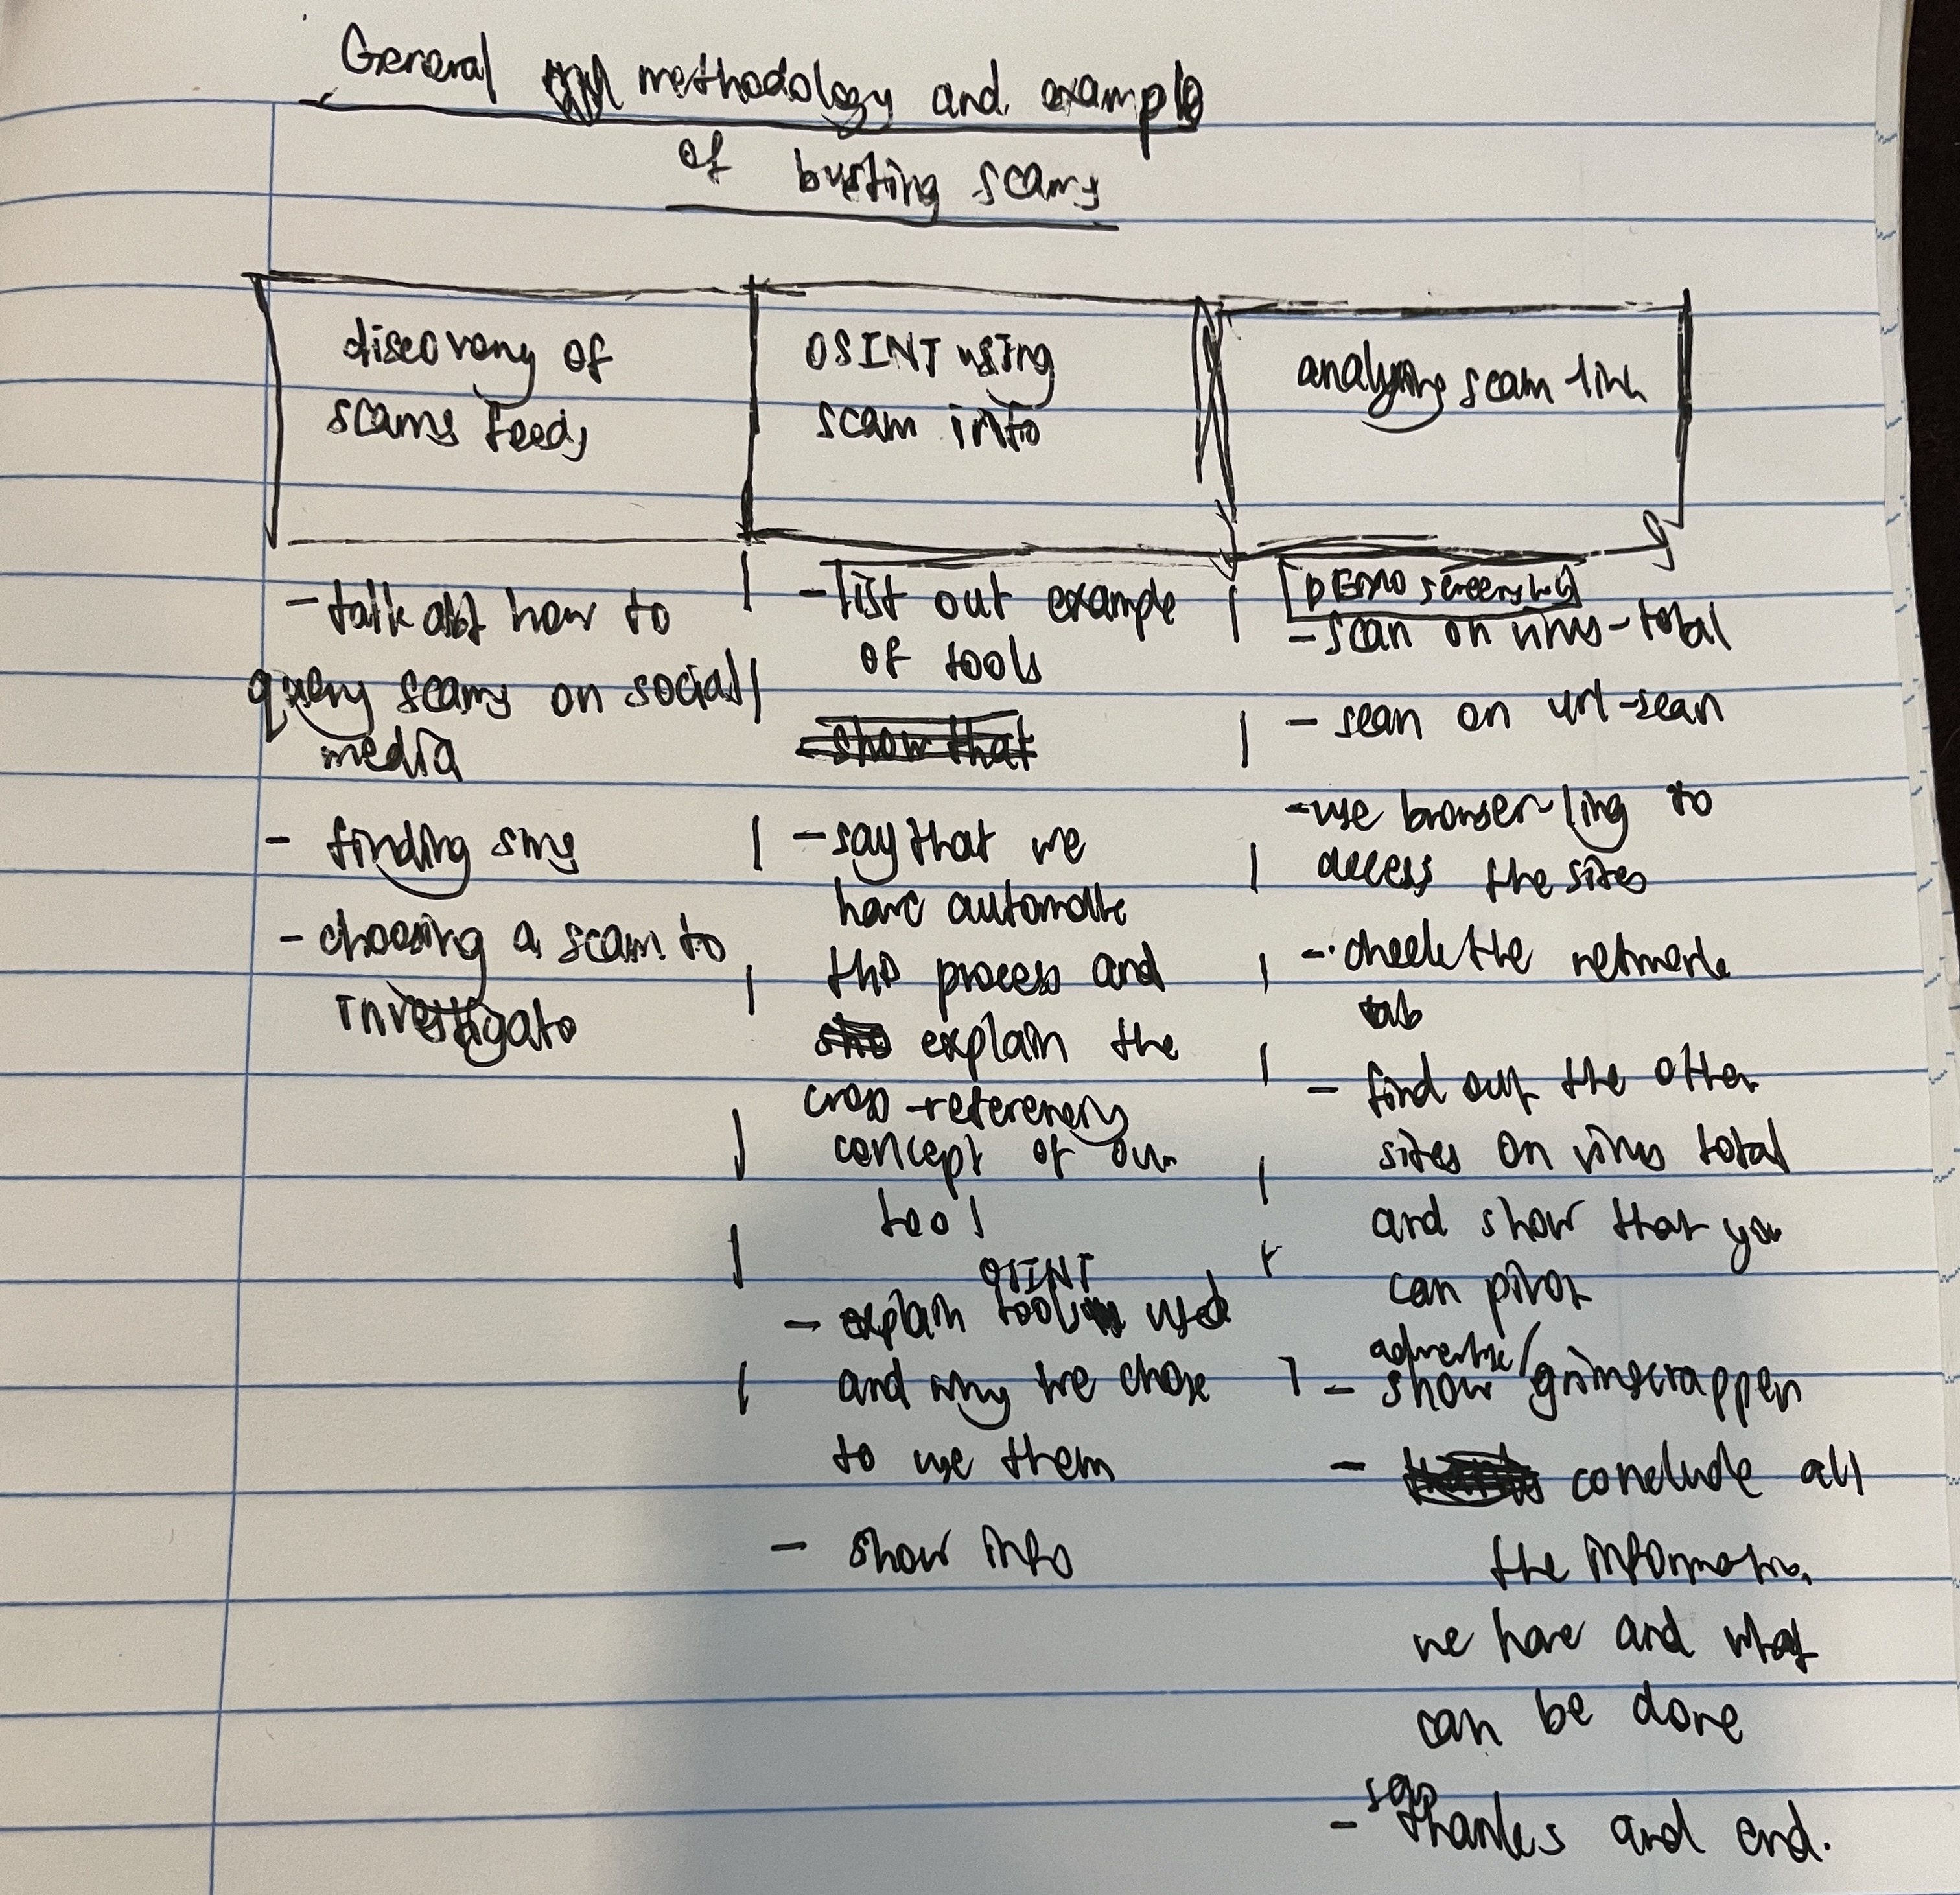 General methodology and example
of busting scams
discovery of
scams feeds
OSINT using
scam info
analysing scam link
- talk abt how to
query scams on social
media
- finding sms
- choosing a scam to
investigate
- list out example
of tools
show that
- say that we
have automate
this process and
explain the
cross-referencing
concept of our
tool
OSINT
- explain tool used
and why we chose
to use them
- show info
DEMO screenshot
- scan on virus-total
- scan on url-scan
- use browser-ling to
access the sites
- check the network
tab
- find out the other
sites on virus total
and show that you
can pivot
advertise/
- show grimscrapper
- conclude all
the information
we have and what
can be done
say
- thanks and end.